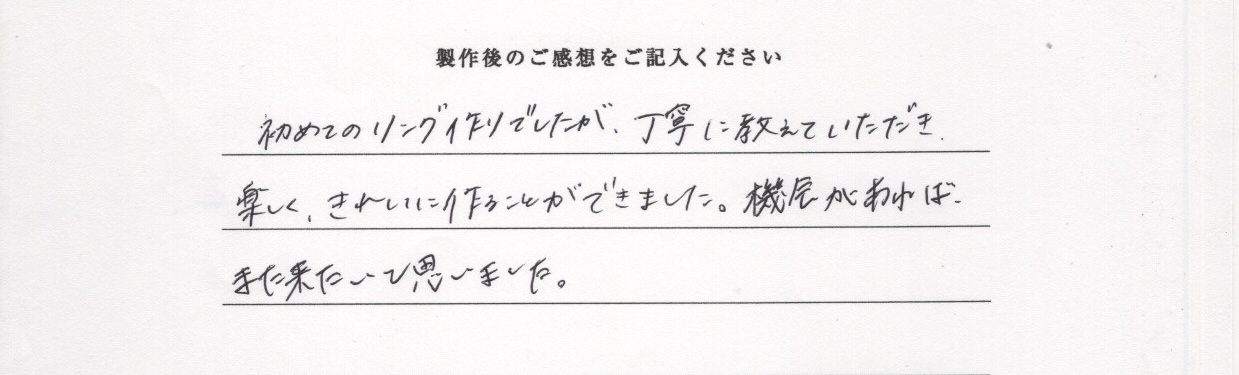 製作後のご感想をご記入ください
初めてのリング作りでしたが、丁寧に教えていただき、
楽しく、きれいに作ることができました。機会があれば、
また来たいと思いました。